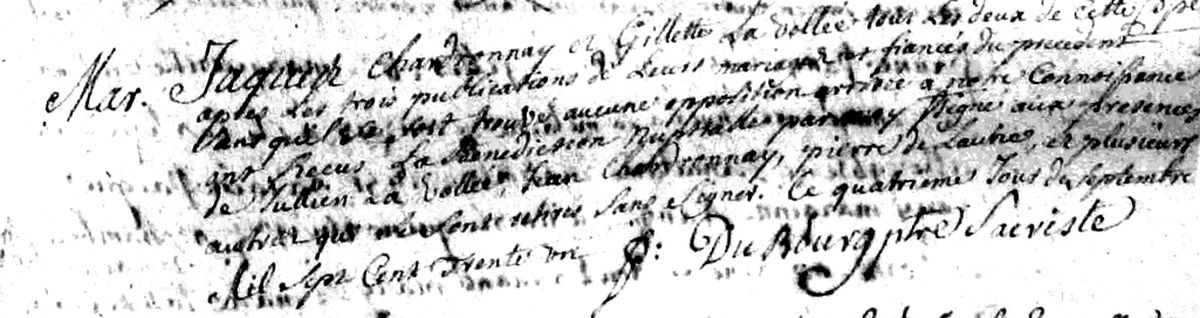 Mar. Jaques Chardronnay et Gillette La vollée tous les deux de cette
apres Les trois publications de Leurs mariages et fiancés du precedent
sans qu'il se soit trouvé aucune opposition arrivée a notre Connoissance
ont Receus La Benediction Nuptialle par moy signe aux presences
de Jullien La Vollée, Jean Chardronnay, pierre de Laubre, et plusieurs
autres qui se sont retirés Sans Signer. Ce quatrieme Jour du Septembre
Mil Sept Cent Trente
p: DuBourg ptre Sacriste